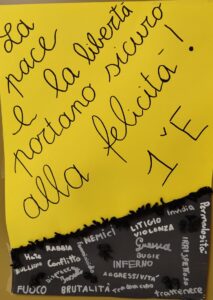 La
pace
e la libertà
portano sicuro
alla felicità!
1^E
Invidia
Permalosità
NEMICI
LITIGIO
VIOLENZA
RABBIA
Hate
BULLISMO
Conflitto
Guerra
BUGIE
INFERNO
IRRISPETTOSO
AGGRESSIVITÀ
FUOCO
BRUTALITÀ